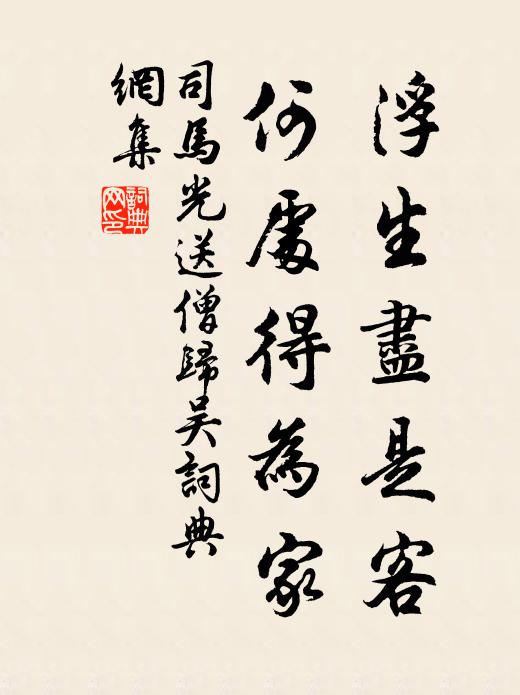 浮生盡是客
何處得為家
司馬光送僧歸吴詞典
網集
詞典網印